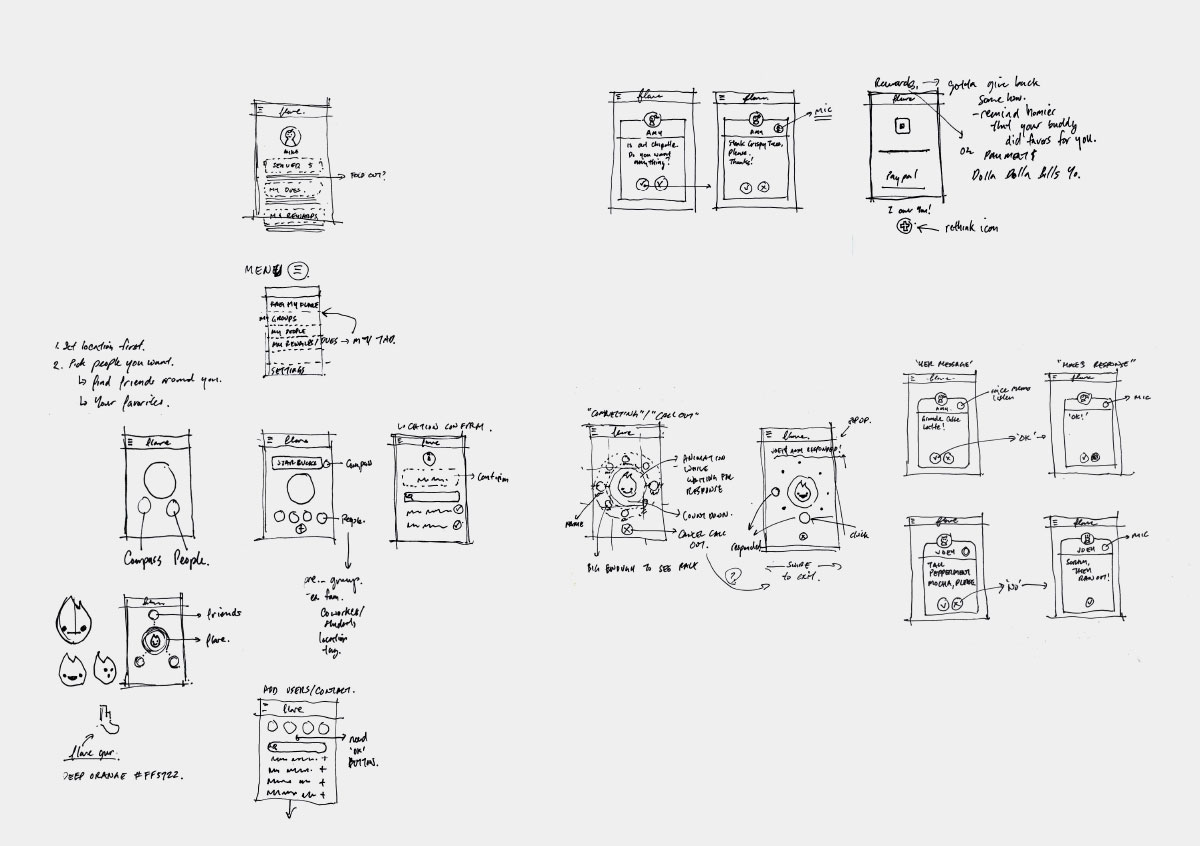 flare.
MIKE
FOLD OUT?
MY DUES.
MY REWARDS
MENU
GROUPS
MY PEOPLE
SETTINGS
1. Set location first.
2. Pick people you want.
↳ find friends around you.
↳ Your favorites.
flare
Compass People.
flare
STARBUCKS
Compass
People.
pre-- groups.
fam.
Coworkers/
students
location
tag.
LOCATION CONFIRM.
flare
Confirm
friends
flare.
flare gun.
DEEP ORANGE #FF5722.
ADD USERS/CONTACT.
flare
need
'OK'
BUTTON.
flare
AMY
is at Chipotle
Do you want
anything?
flare
MIC
AMY
Steak Crispy Tacos,
Please.
Thanks!
Rewards. → gotta give back
somehow.
- remind homier
that your buddy
did favors for you.
OR PAYMENTS
Dolla Dolla bills yo.
flare
PayPal
I owe You!
rethink icon
"CONNECTING"/"CALL OUT"
flare
ANIMATION
WHILE
WAITING FOR
RESPONSE
COUNTDOWN.
CANCEL CALL
OUT.
NAME
BIG ENOUGH TO SEE FACE
?
POP.
flare.
USER HAS RESPONDED!
responded
click
SWIPE
to exit.
'USER MESSAGE'
flare.
voice memo
listen
AMY.
Grande Cafe
Latte!
'OK'
"MIKE'S RESPONSE"
flare
MIC
'OK!'
flare
JOEY
TALL
PEPPERMINT
MOCHA, PLEASE
'NO'
flare
MIC
JOEY
SORRY,
THEY
RAN OUT!